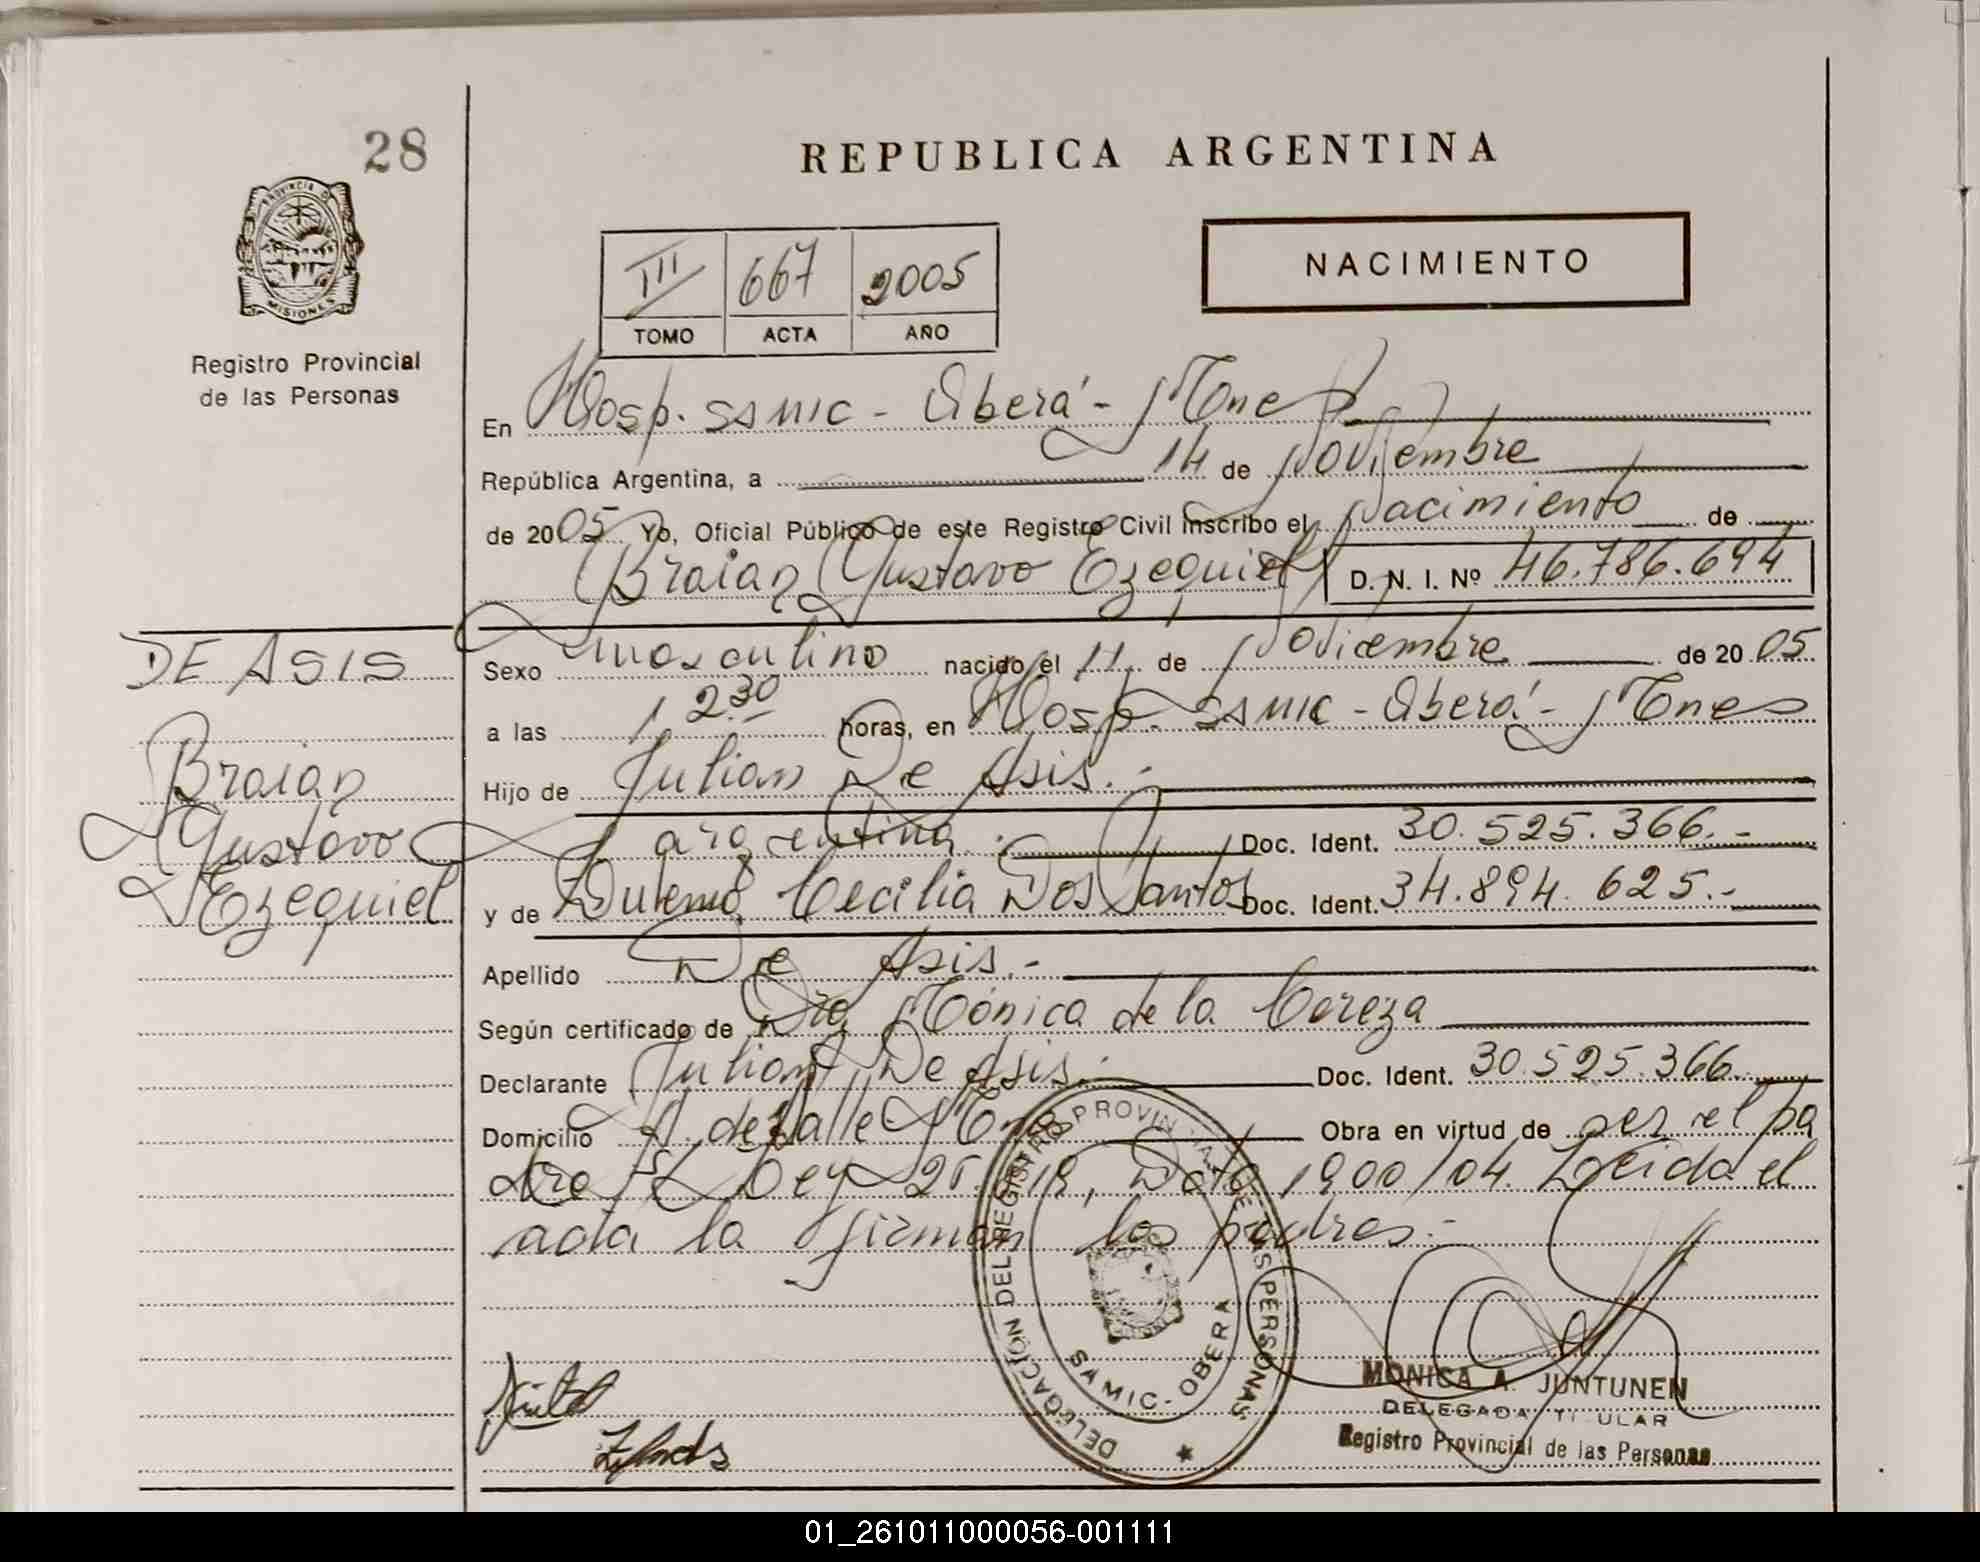 28
REPUBLICA ARGENTINA
PROVINCIA D MISIONES
Registro Provincial
de las Personas
III 667 2005
TOMO ACTA AÑO
NACIMIENTO
En Hosp. SAMIC - Oberá - Mnes
República Argentina, a 14 de Noviembre
de 2005 Yo, Oficial Público de este Registro Civil inscribo el Nacimiento de
Braian Gustavo Ezequiel D. N. I. Nº 46.786.694
DE ASIS
Sexo masculino nacido el 11 de Noviembre de 2005
a las 12.30 horas, en Hosp. SAMIC - Oberá - Mnes
Braian
Hijo de Julian De Asis.-
Gustavo
argentina.- Doc. Ident. 30.525.366.-
Ezequiel
y de Cecilia Dos Santos Doc. Ident. 34.894.625.-
Apellido De Asis.-
Según certificado de Dra Mónica de la
Declarante Julian De Asis.- Doc. Ident. 30.525.366.
Domicilio A. del Valle Mnes Obra en virtud de ser el pa
dre Ley 18, Dto 1900/04. Leida el
acta la firman los padres.-
DELEGACIÓN DEL REGISTRO PROVINCIAL DE LAS PERSONAS
SAMIC - OBERA
MONICA A. JUNTUNEN
DELEGADA TITULAR
Registro Provincial de las Personas
01_261011000056-001111